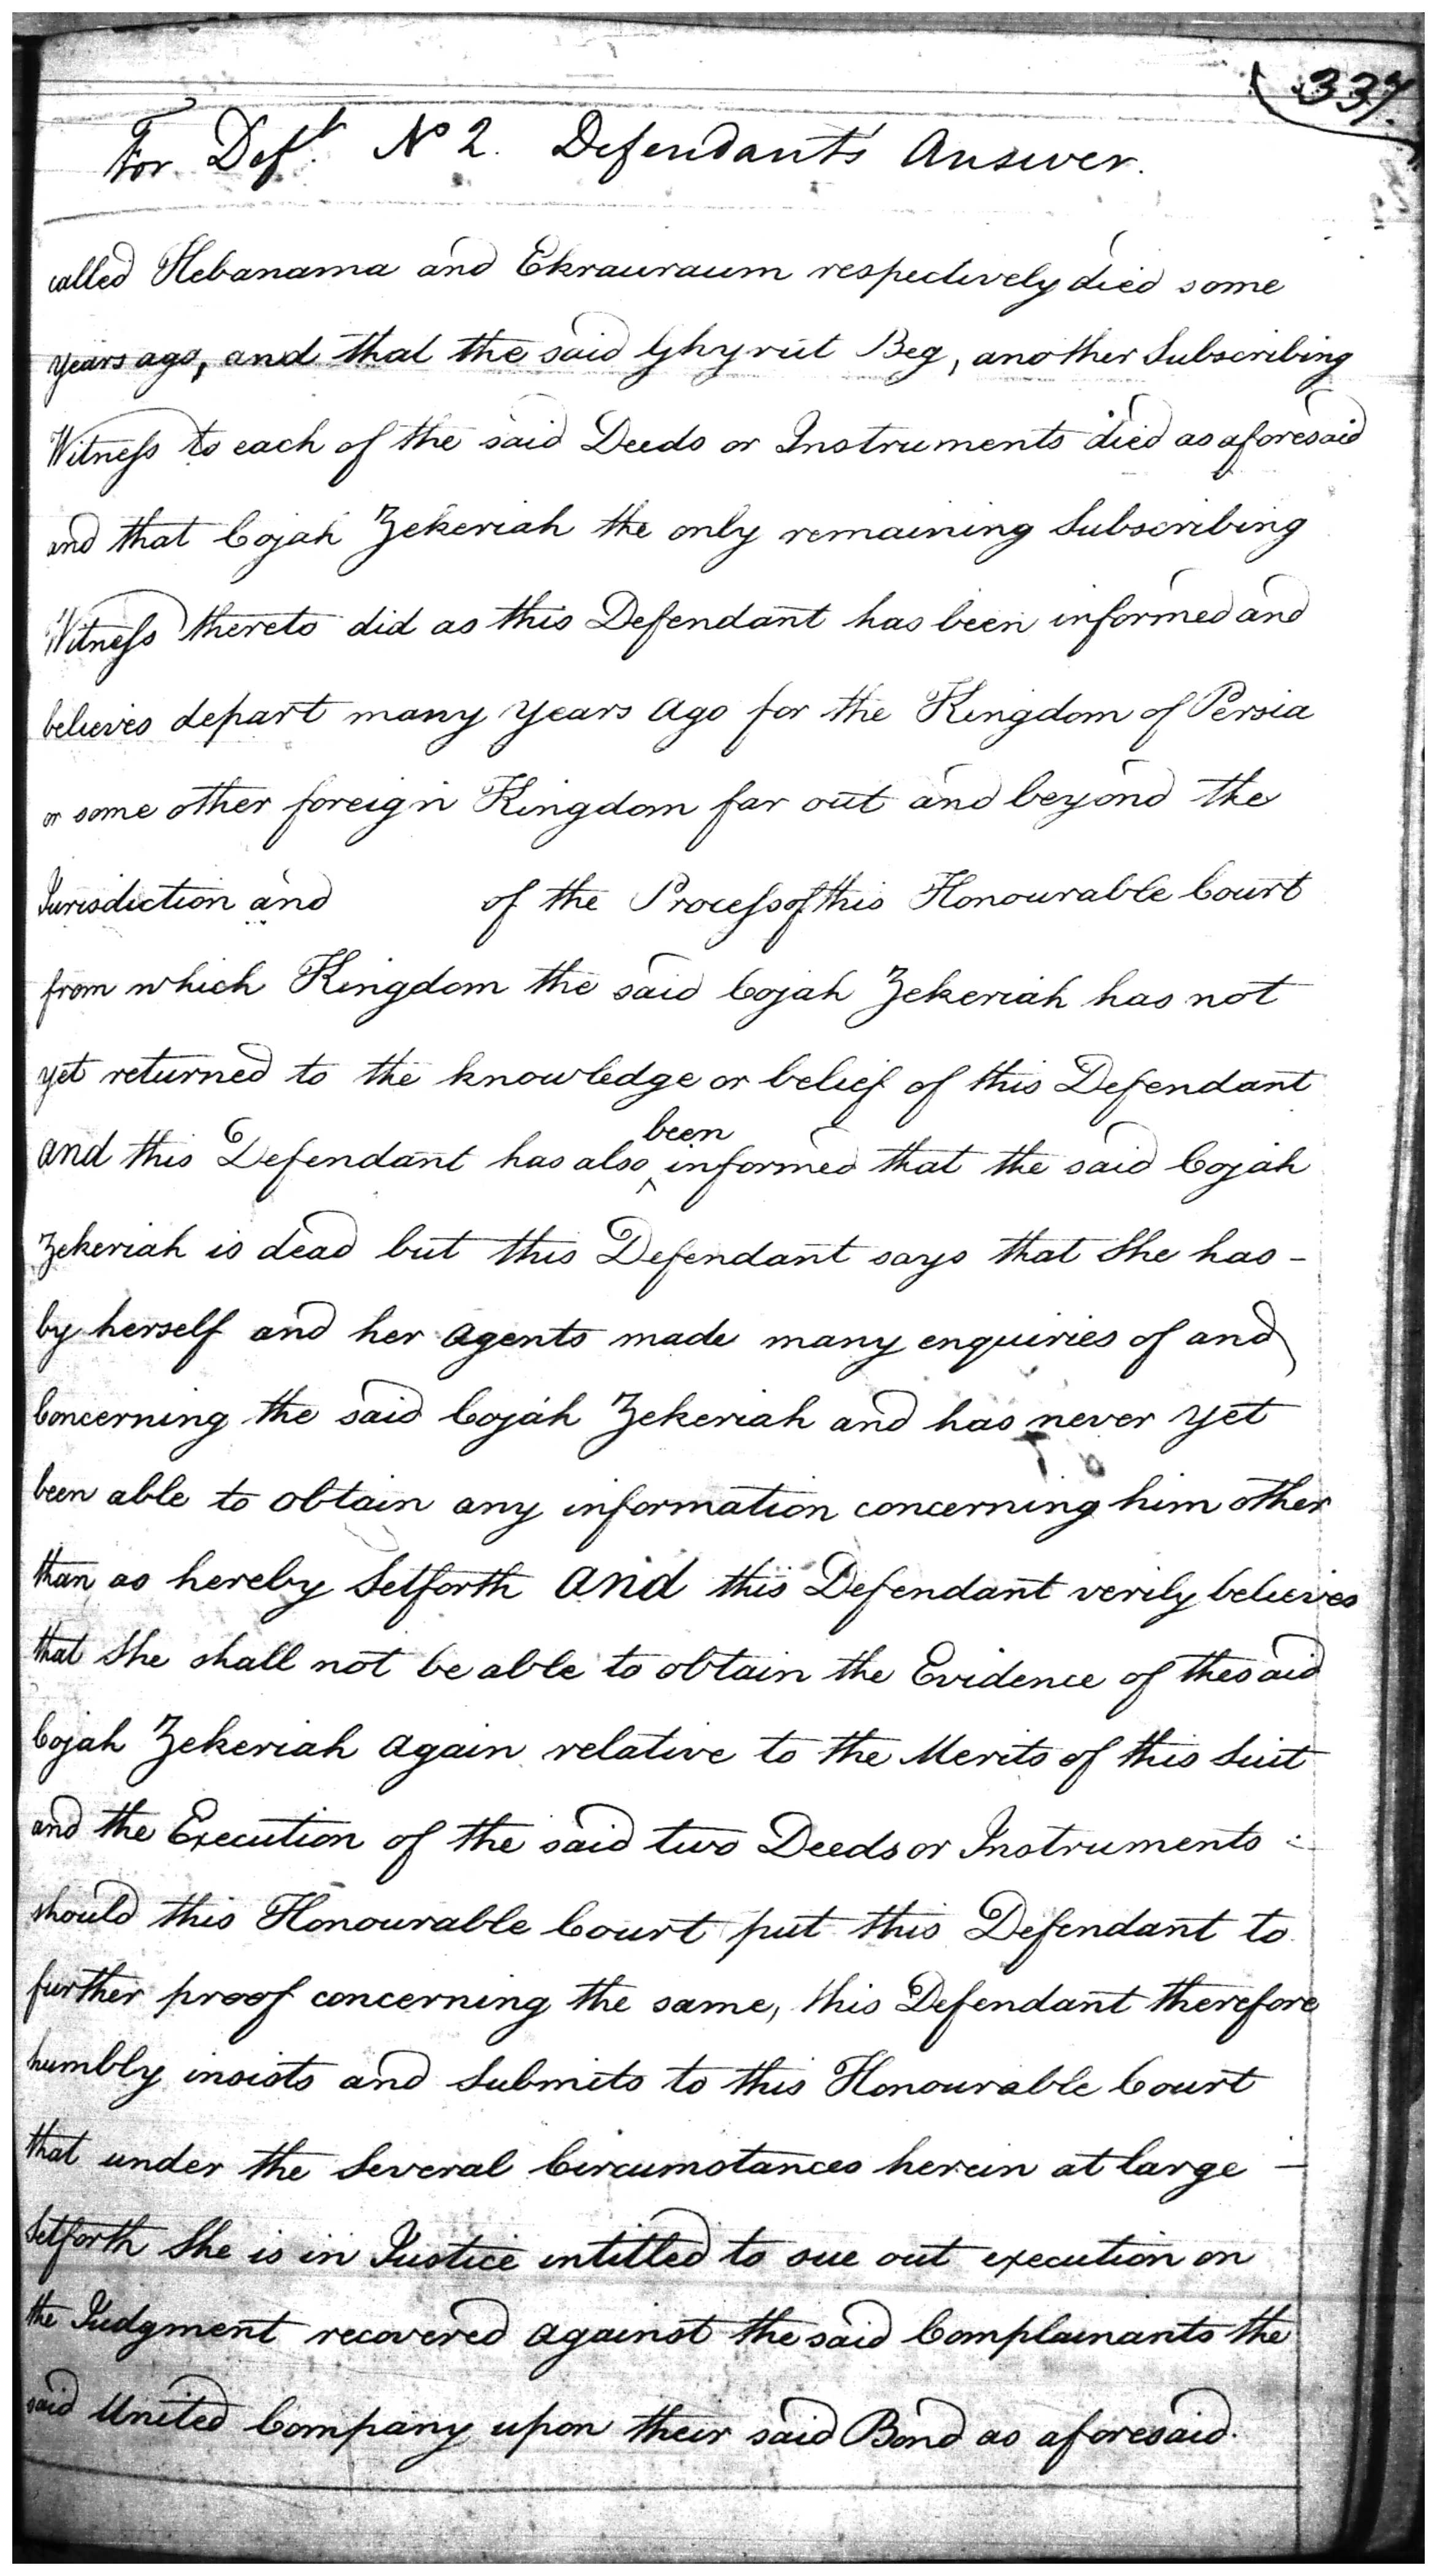 337.
For Deft. No 2. Defendant's Answer.
called Hebanama and Ekrauraum respectively died some
years ago, and that the said Ghyrut Beg, another Subscribing
Witness to each of the said Deeds or Instruments died as aforesaid
and that Cojah Zekeriah the only remaining Subscribing
Witness thereto did as this Defendant has been informed and
believes depart many years ago for the Kingdom of Persia
or some other foreign Kingdom far out and beyond the
Jurisdiction and of the Process of this Honourable Court
from which Kingdom the said Cojah Zekeriah has not
yet returned to the knowledge or belief of this Defendant
and this Defendant has also been informed that the said Cojah
Zekeriah is dead but this Defendant says that She has -
by herself and her Agents made many enquiries of and
Concerning the said Cojah Zekeriah and has never yet
been able to obtain any information concerning him other
than as hereby Setforth and this Defendant verily believes
that She shall not be able to obtain the Evidence of the said
Cojah Zekeriah again relative to the Merits of this Suit
and the Execution of the said two Deeds or Instruments -
should this Honourable Court put this Defendant to
further proof concerning the same, this Defendant therefore
humbly insists and Submits to this Honourable Court
that under the Several Circumstances herein at large -
Setforth She is in Justice intitled to sue out execution on
the Judgment recovered against the said Complainants the
said United Company upon their said Bond as aforesaid.